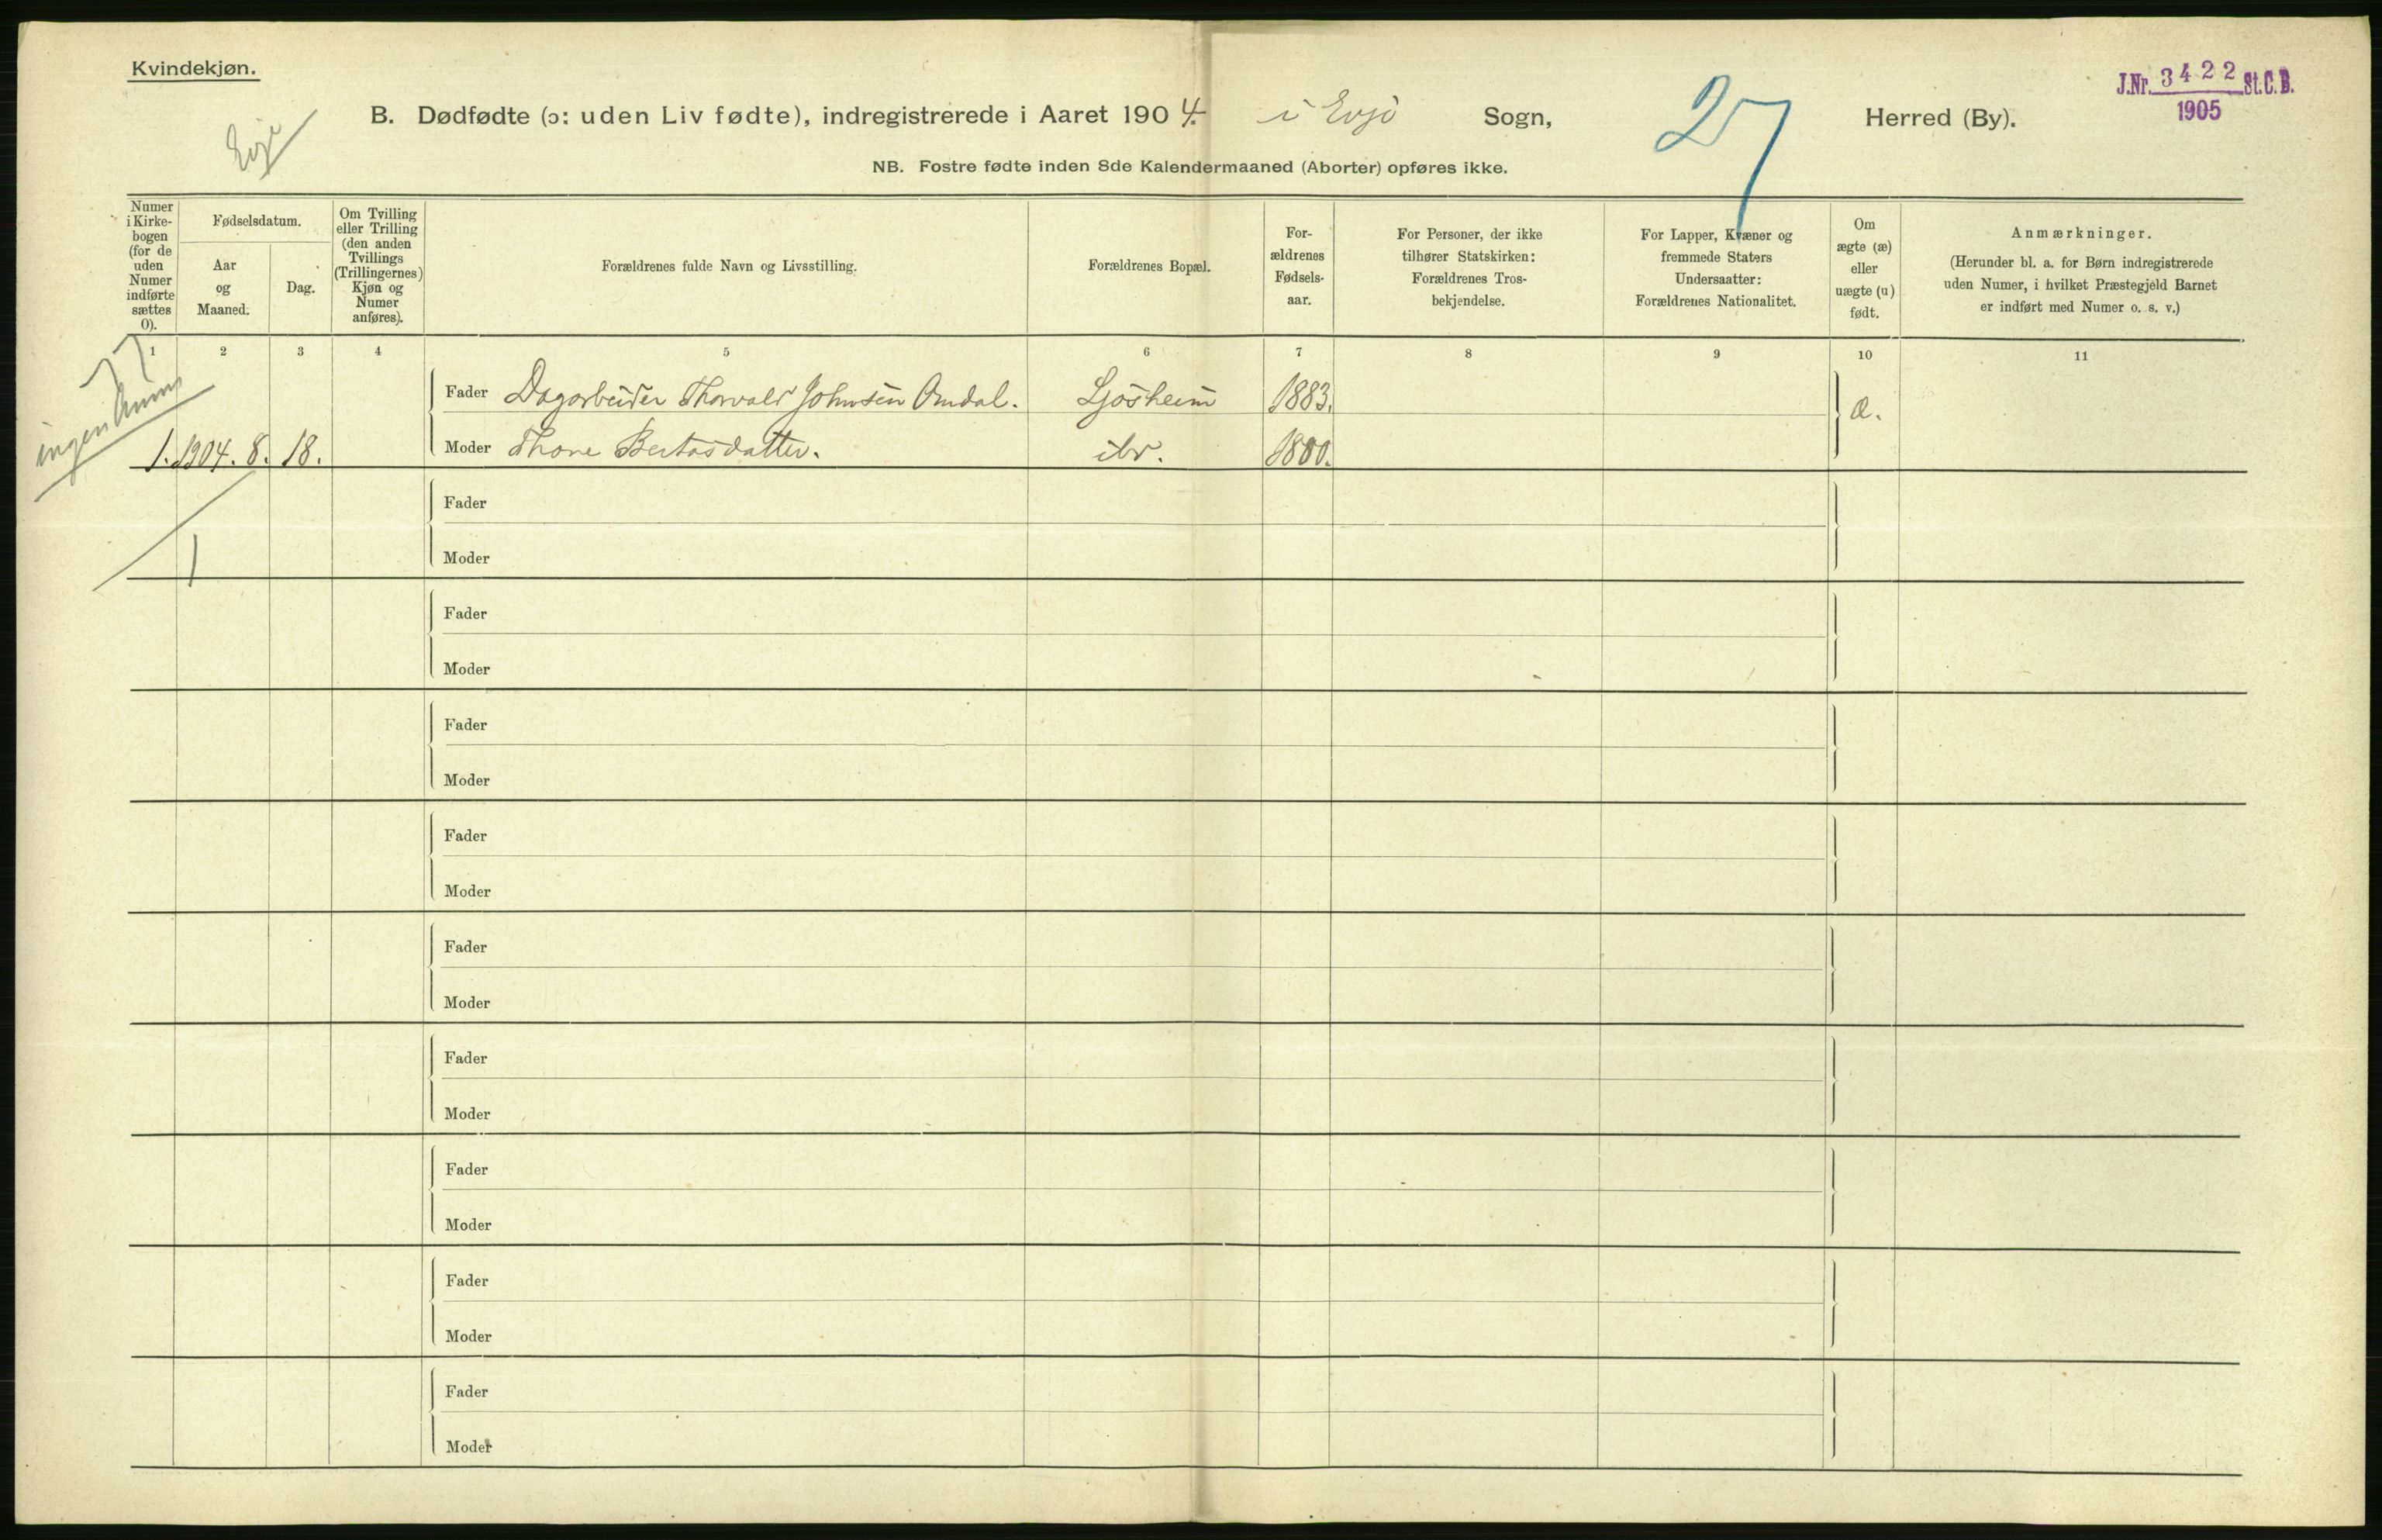 Kvindekjøn.
J.Nr. 3422 St.C.B.
1905
Evje
B. Dødfødte (ɔ: uden Liv fødte), indregistrerede i Aaret 1904. i Evje Sogn, Herred (By).
27
NB. Fostre fødte inden 8de Kalendermaaned (Aborter) opføres ikke.
Numer i Kirke-bogen (for de uden Numer indførte sættes 0).
Fødselsdatum.
Aar og Maaned.
Dag.
Om Tvilling eller Trilling (den anden Tvillings (Trillingernes) Kjøn og Numer anføres).
Forældrenes fulde Navn og Livsstilling.
Forældrenes Bopæl.
For-ældrenes Fødsels-aar.
For Personer, der ikke tilhører Statskirken: Forældrenes Tros-bekjendelse.
For Lapper, Kvæner og fremmede Staters Undersaatter: Forældrenes Nationalitet.
Om ægte (æ) eller uægte (u) født.
Anmærkninger.
(Herunder bl. a. for Børn indregistrerede uden Numer, i hvilket Præstegjeld Barnet er indført med Numer o. s. v.)
1 2 3 4 5 6 7 8 9 10 11
ingen Anm
Fader Dagarbeider Thorvald Johnsen Omdal. Ljosheim 1883. æ.
1. 1904. 8. 18. Moder Thone Bertasdatter. ibd. 1880.
Fader
1
Moder
Fader
Moder
Fader
Moder
Fader
Moder
Fader
Moder
Fader
Moder
Fader
Moder
Fader
Moder
Fader
Moder